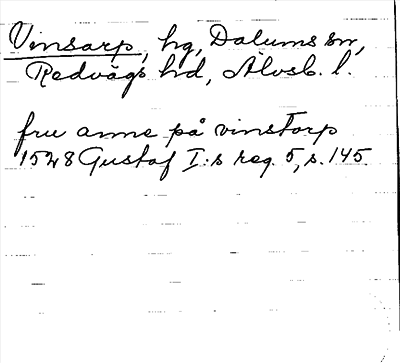 Vinsarp, hg, Dalums sn,
Redvägs hd, Älvsb. l.
fru anne på vinstorp
1528 Gustaf I:s reg. 5, s. 145.